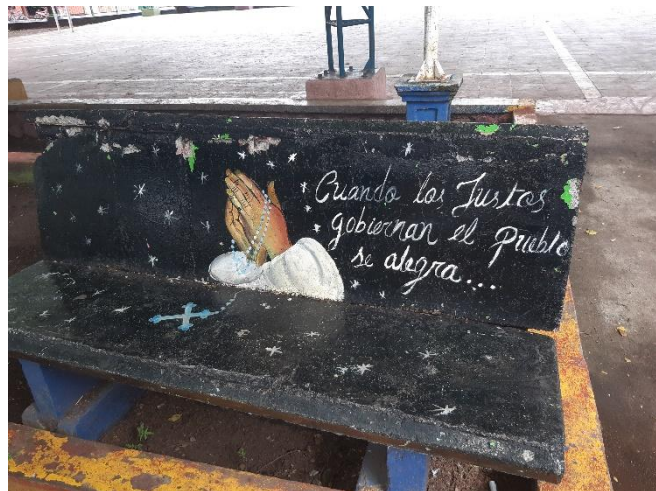 Cuando los Justos
gobiernan el Pueblo
se alegra....